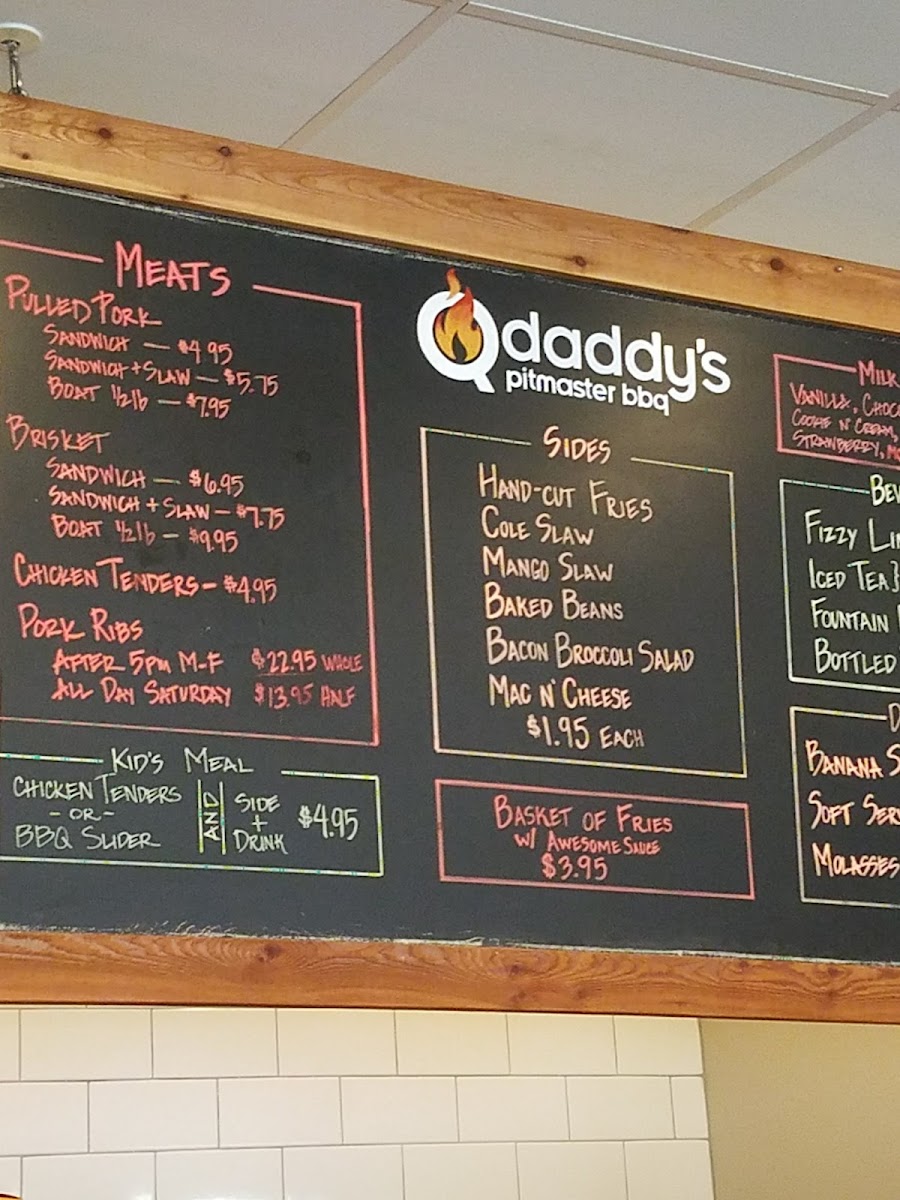 MEATS
PULLED PORK
SANDWICH — $4.95
SANDWICH + SLAW — $5.75
BOAT 1/2 lb — $7.95
BRISKET
SANDWICH — $6.95
SANDWICH + SLAW — $7.75
BOAT 1/2 lb — $9.95
CHICKEN TENDERS - $4.95
PORK RIBS
AFTER 5PM M-F $22.95 WHOLE
ALL DAY SATURDAY $13.95 HALF
KID'S MEAL
CHICKEN TENDERS
- OR -
BBQ SLIDER
AND
SIDE
+
DRINK
$4.95
Qdaddy's
pitmaster bbq
SIDES
HAND-CUT FRIES
COLE SLAW
MANGO SLAW
BAKED BEANS
BACON BROCCOLI SALAD
MAC N' CHEESE
$1.95 EACH
BASKET OF FRIES
W/ AWESOME SAUCE
$3.95
MILK
VANILLA, CHOCO
COOKIE N' CREAM,
STRAWBERRY, MO
BEV
FIZZY LI
ICED TEA }
FOUNTAIN
BOTTLED
D
BANANA S
SOFT SER
MOLASSES